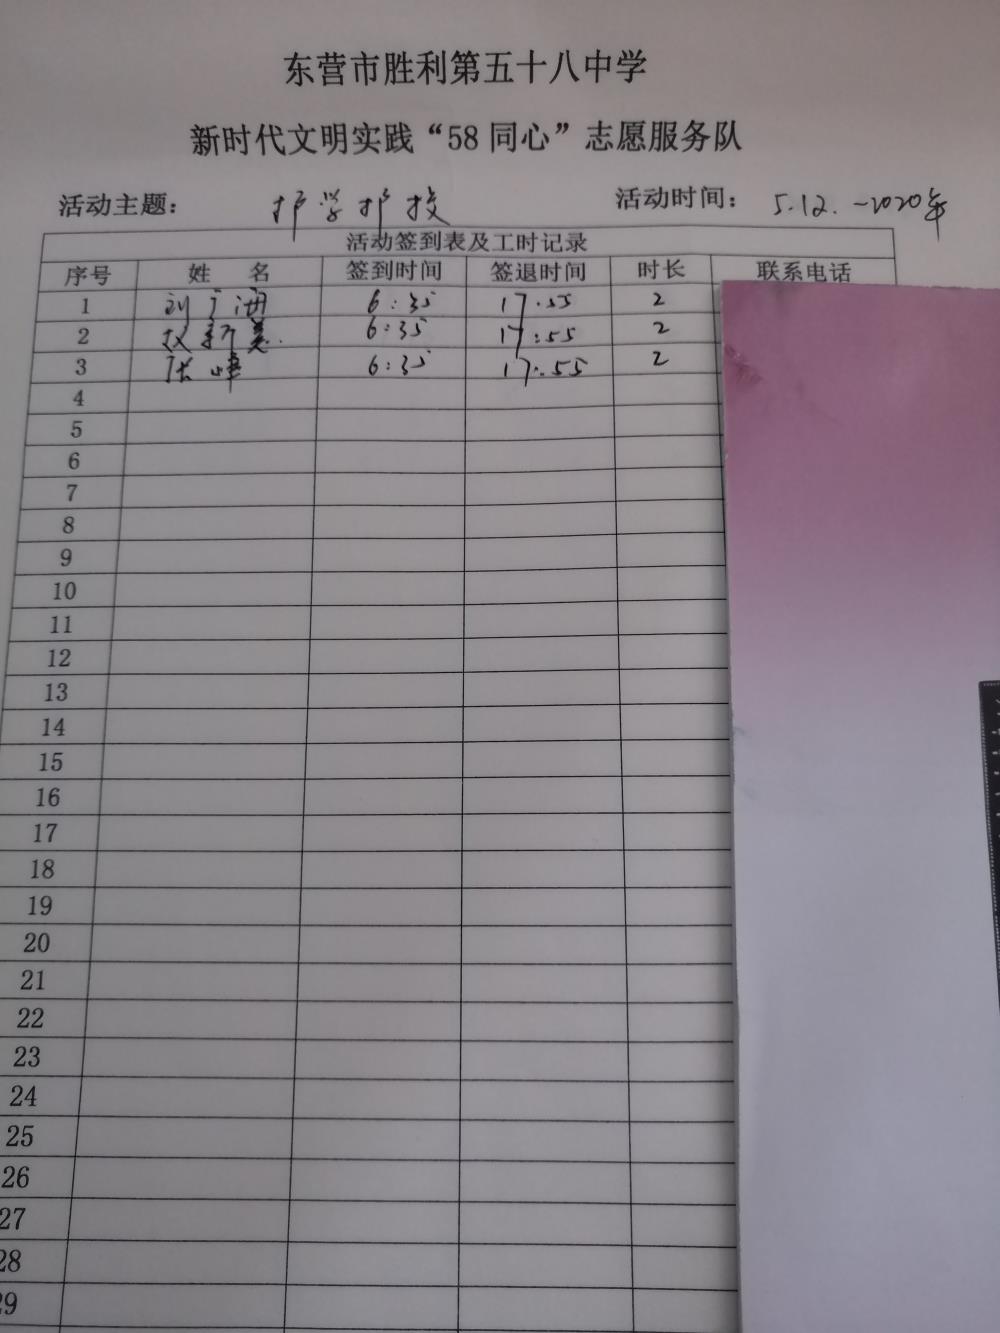 东营市胜利第五十八中学
新时代文明实践“58同心”志愿服务队
活动主题： 护学护校 活动时间： 5.12.-2020年
活动签到表及工时记录
序号 姓 名 签到时间 签退时间 时长 联系电话
1 刘广海 6:35 17:55 2
2 赵新美 6:35 17:55 2
3 张峰 6:35 17:55 2
4
5
6
7
8
9
10
11
12
13
14
15
16
17
18
19
20
21
22
23
24
25
26
27
28
29